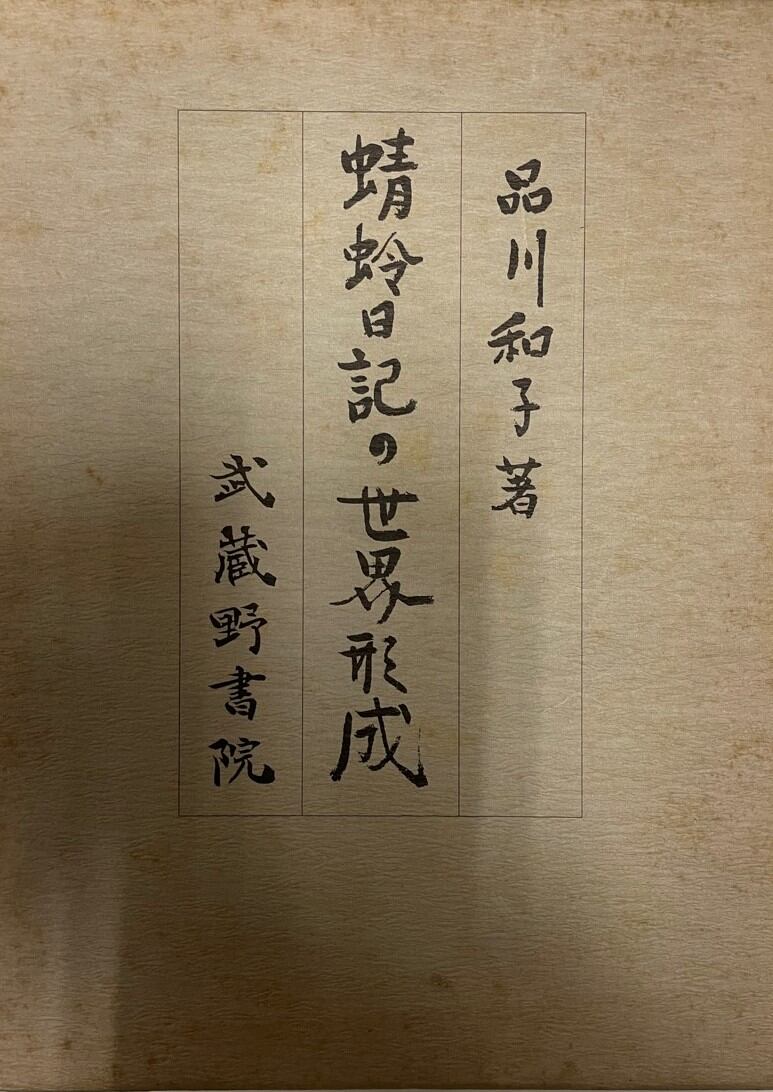 品川和子著
蜻蛉日記の世界形成
武蔵野書院